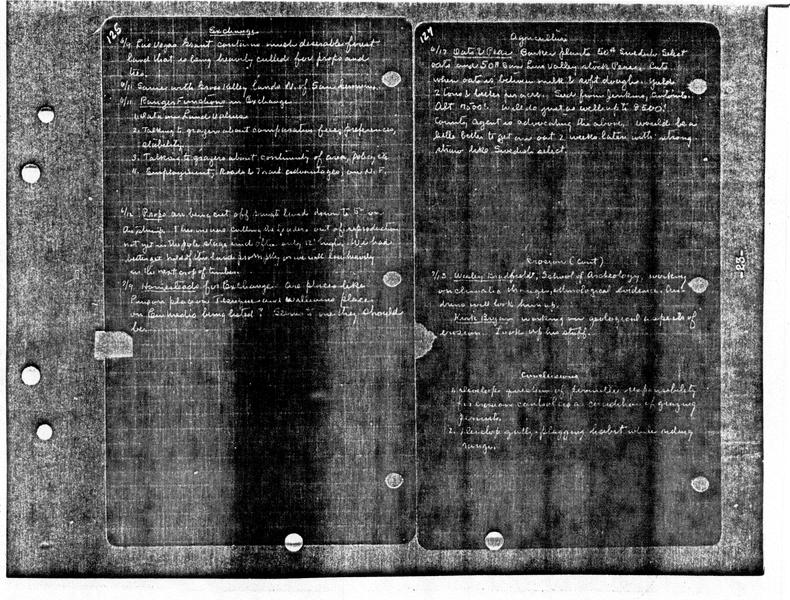 126
Exchange
6/9 Las Vegas Grant contains much desirable forest
land that is being heavily culled for props and
ties.
6/11 Same with Grass Valley lands N. of
6/11 Ranger Functions in Exchange
1. Data on Land Values
2. Talking to grazers about comparative fees, preferences,
stability
3. Talking to grazers about continuity of area, policy, etc
4. Employment, Roads & Trail advantages, on N.F.
6/12 Props are being cut off private land down to 5" on
the stump. I have seen culling the out of reproduction
not yet in the pole stage and often only 12' high. We had
better get hold of this land promptly or we will lose heavily
in the next crop of timber.
7/9 Homesteads for Exchange. Are places like
place on and place
on being listed? Seems to me they should
be.
127
Agriculture
Oats & Peas. Barker plants 50# Swedish Select
oats and 50# San Luis Valley stock Peas. Cuts
when oats is between milk & soft dough. Yields
2 tons & better per acre. Seed from Jenkins,
Alt 7500'. Will do just as well up to 8500'.
County agent is advocating the above. Would be a
little better to get an oat 2 weeks later with strong
straw like Swedish select.
Erosion (Cont)
7/13 Wesley Bradfield, School of Archeology, working
on climatic changes, ethnological evidence.
will look him up.
Kirk Bryan working on geological aspects of
erosion. Look up his stuff.
Conclusions
1. Develop question of permittee responsibility
for erosion control as a condition of grazing
permits.
2. Develop gully-plugging habit while riding
range.
-23-